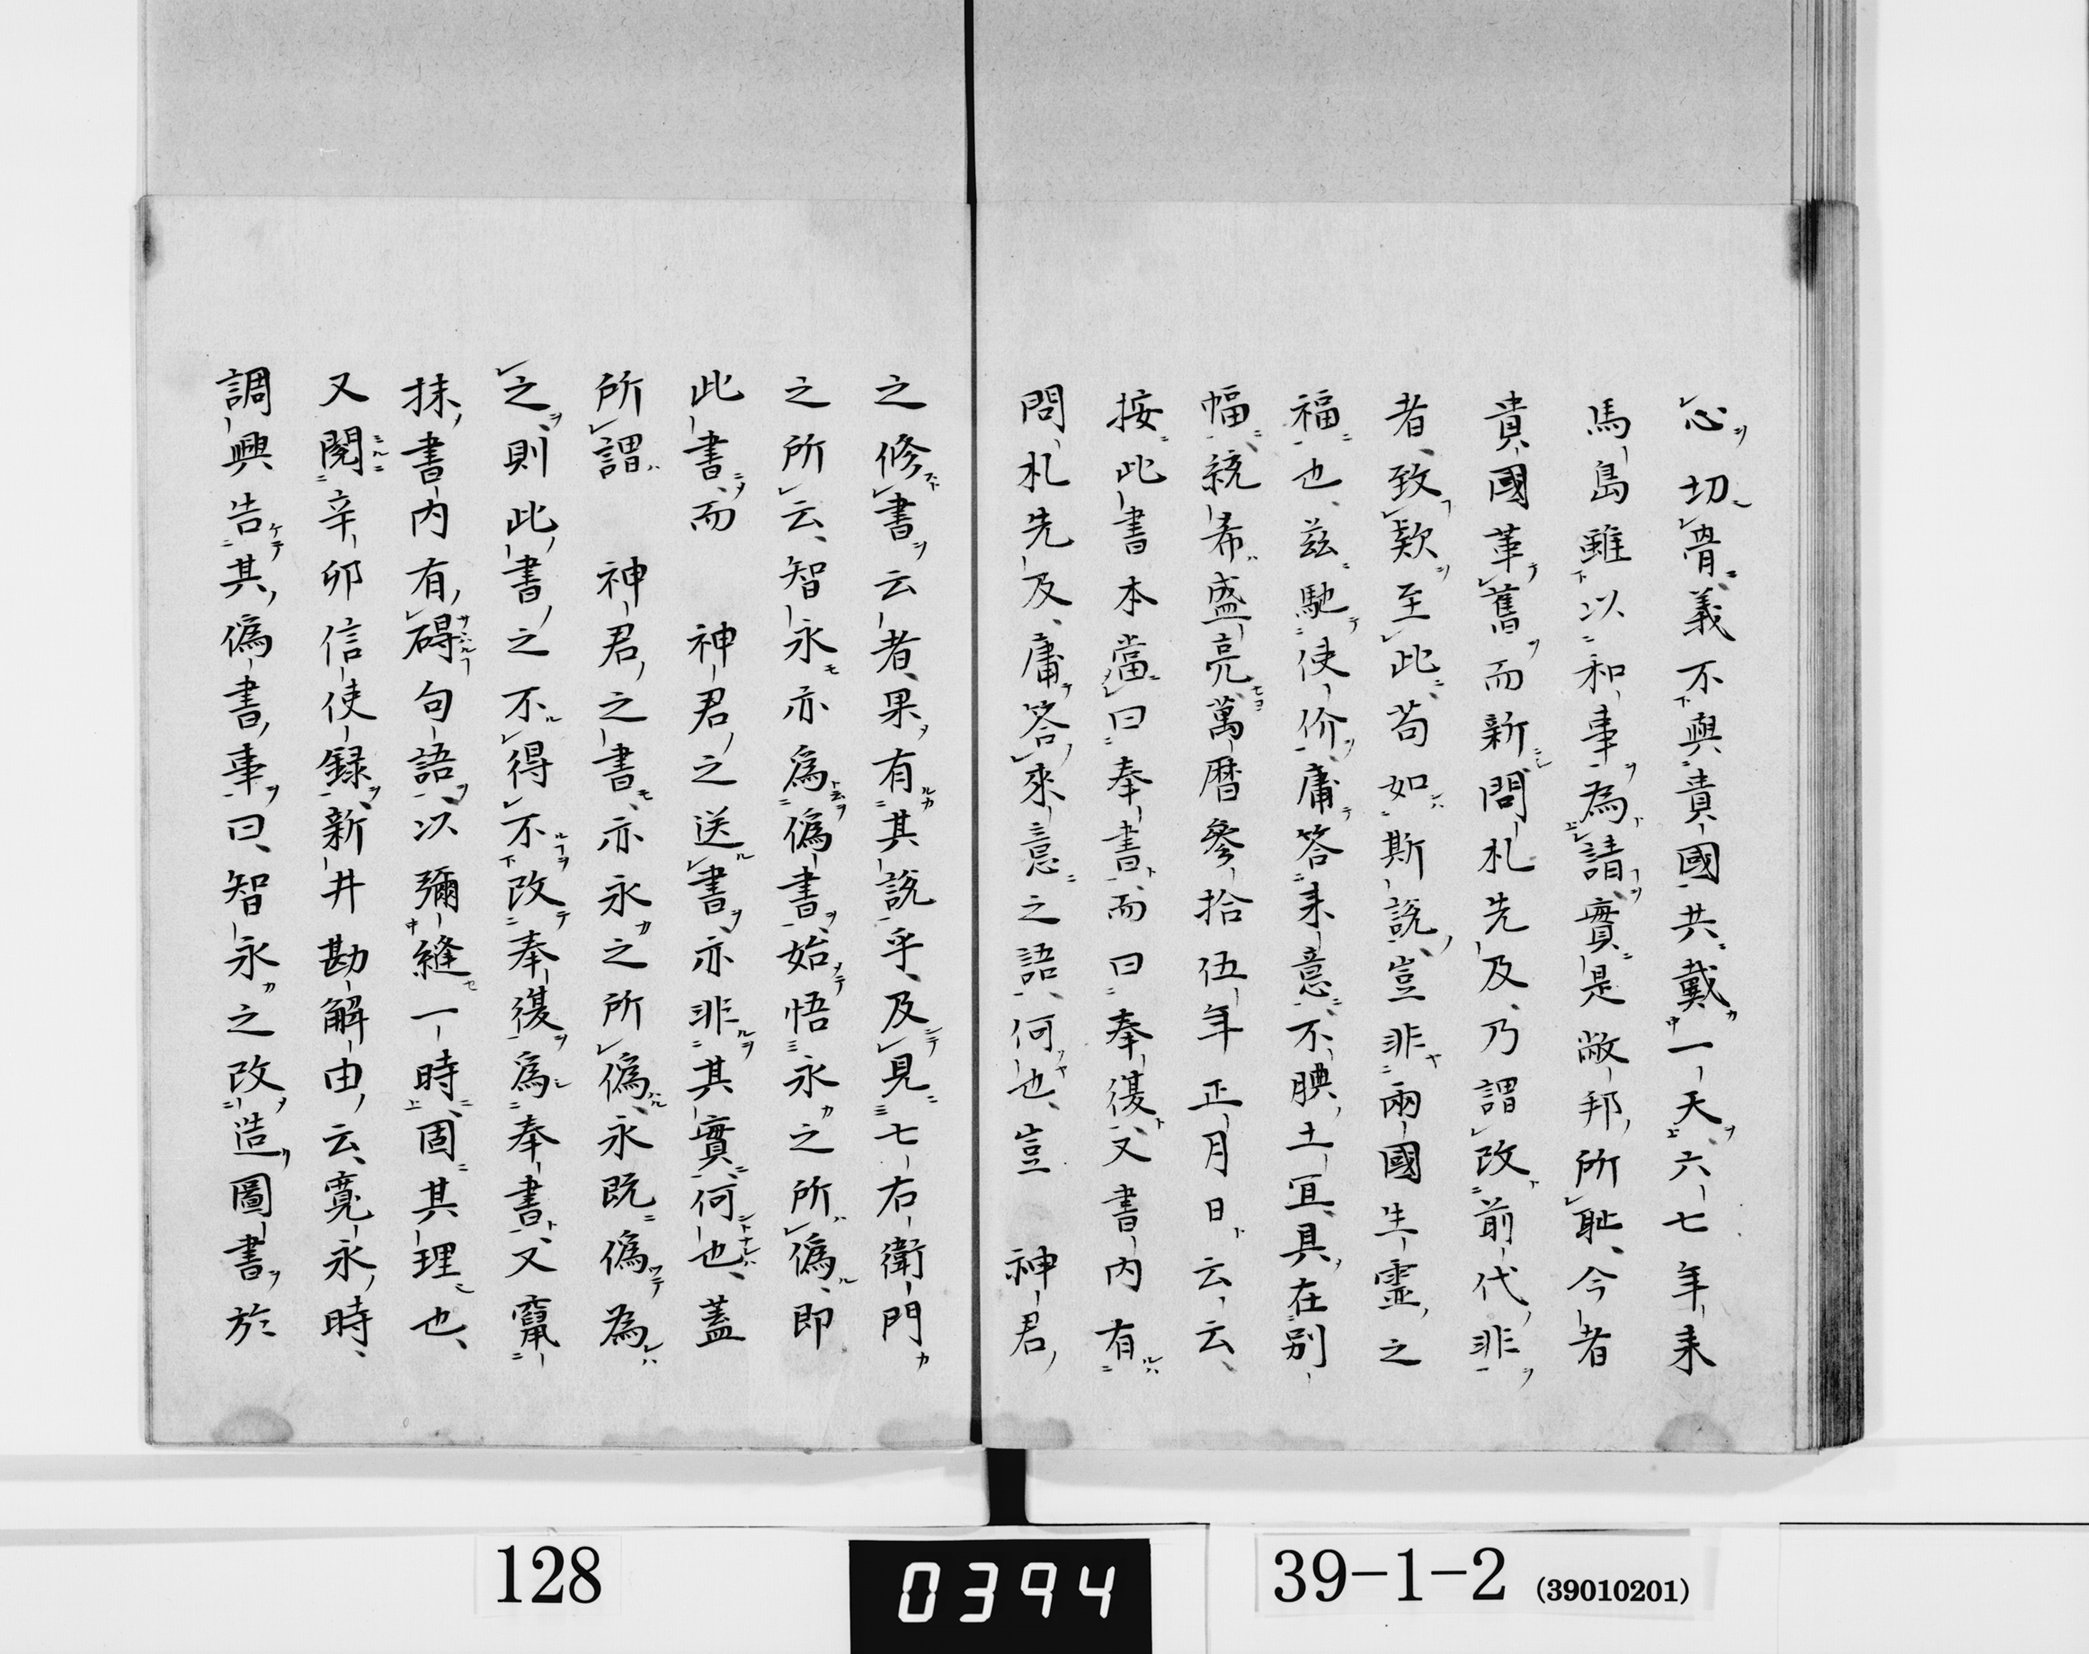 心切骨義不與貴國共戴一天六七年来
馬島雖以和事為請實是敝邦所耻今者
貴國革舊而新問札先及乃謂改前代非
者致欵至此苟如斯說豈非兩國生靈之
福也茲馳使价庸答来意不腆土冝具在別
幅統希盛亮萬曆參拾伍年正月日云云
按此書本當曰奉書而曰奉復又書内有
問札先及庸答來意之語何也豈　神君
之修書云者果有其說乎及見七右衛門
之所云智永亦為偽書始悟永之所偽即
此書而　神君之送書亦非其實何也蓋
所謂　神君之書亦永之所偽永既偽為
之則此書之不得不改奉復為奉書又竄
抹書内有碍句語以彌縫一時固其理也
又閱辛卯信使録新井勘解由云寛永時
調興告其偽書事曰智永之改造圖書於
128
0394
39-1-2 (39010201)